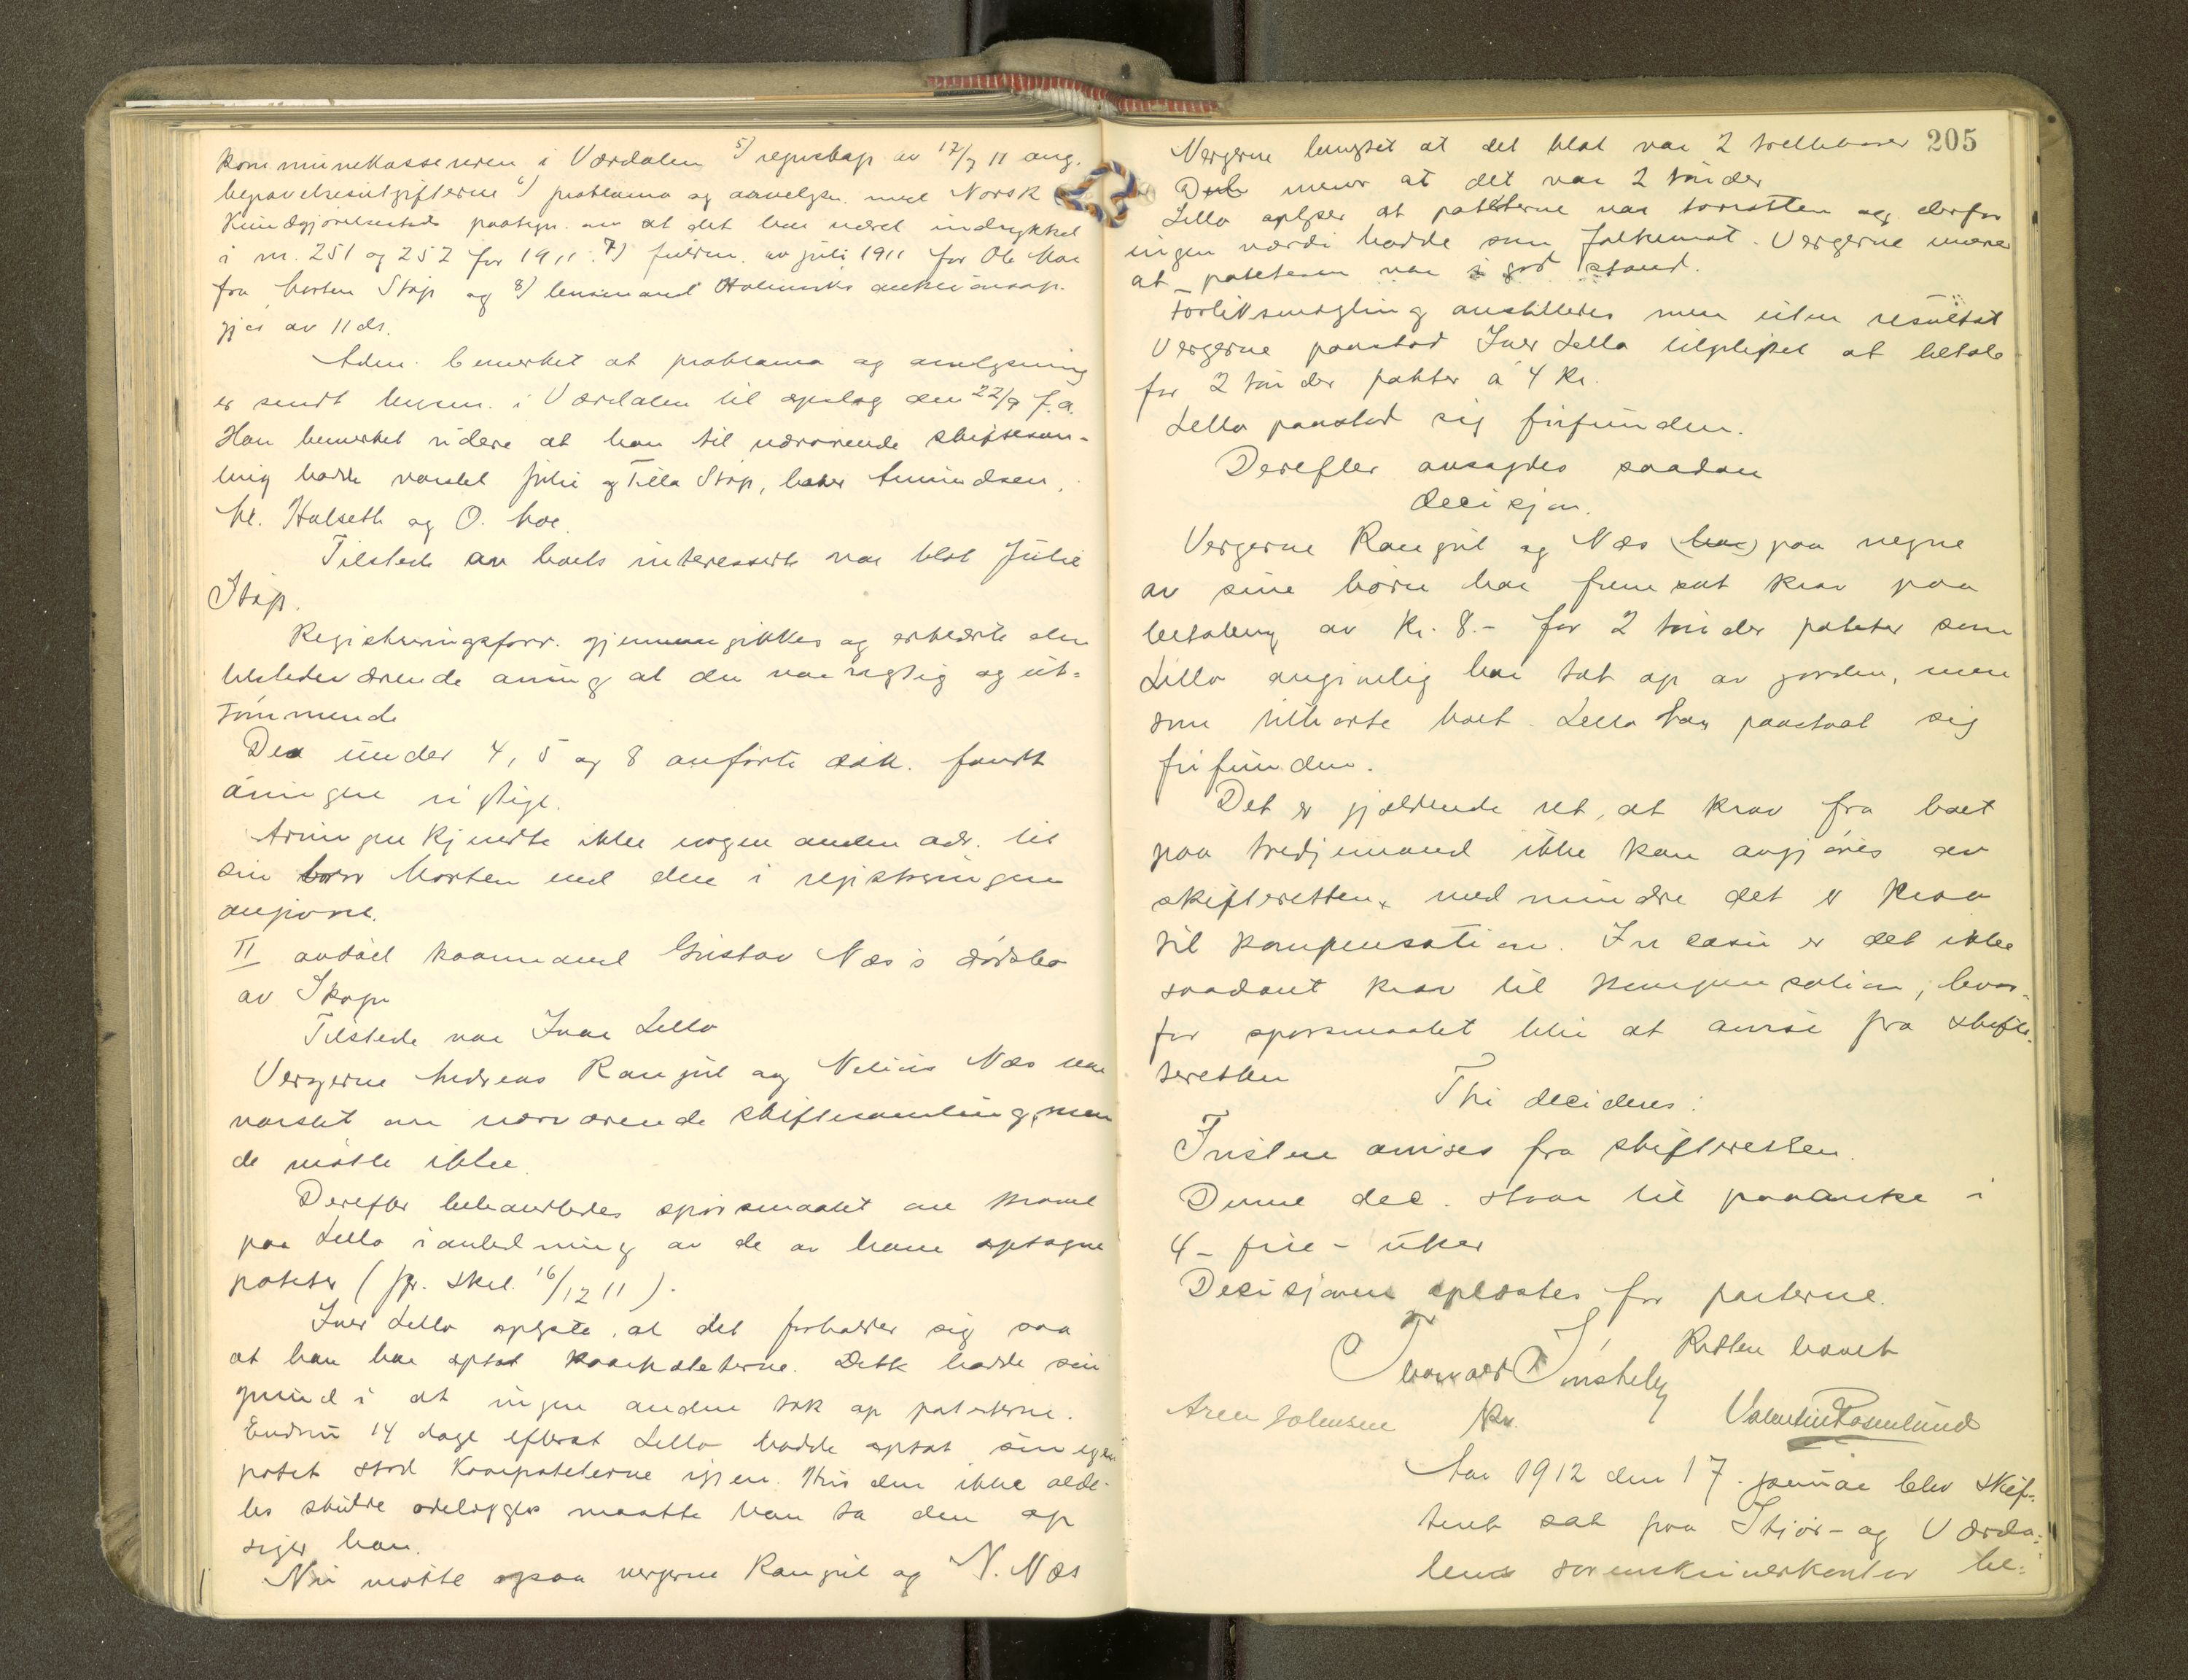 kommunekassereren i Værdalen 5) regnskap av 17/7 11 ang.
begravelsesutgifterne 6) proklama og avvelgsn. med Norsk
Kundgjørelsestid. paategn. om at det har været indrykket
i nr. 251 og 252 for 1911. 7) av juli 1911 for Ole Moe
fra Morten Stop og 8) lensmand Holmviks auktionsop-
gjør av 11 ds.
Adm. bemerket at proklama og avvelgsning
er sendt lensm. i Værdalen til opslag den 22/9 f.a.
Han bemerket videre at han til nærværende skiftesam-
ling hadde varslet Julie og Tilla Stop, Amundsen,
Kr. Halseth og O. Moe.
Tilstede av boets interesserte var blot Julie
Stop.
Registreringsforr. gjennemgikkes og erklærte den
tilstedeværende arving at den var rigtig og ut-
tømmende
De under 4, 5 og 8 anførte dok. fandt
arvingen rigtige.
Arvingen kjendte ikke nogen anden adr. til
sin bror Morten end den i registreringen
angivne.
II avdød kaarmand Gustav Næs's dødsbo
av Skogn
Tilstede var Iver Lello
Vergerne Andreas Rangul og Nelius Næs var
varslet om nærværende skiftesamling, men
de møtte ikke.
Derefter behandledes spørsmaalet om kravet
paa Lello i anledning av de av ham optagne
poteter (jfr. skel. 16/12 11).
Iver Lello oplyste, at det forholder sig saa
at han har optat kaarpoteterne. Dette hadde sin
grund i at ingen anden tok op poteterne.
Endnu 14 dage efterat Lello hadde optat sin egen
potet stod kaarpoteterne igjen. Hvis den ikke alde-
les skulde ødelægges maatte han ta den op
siger han.
Nu møtte ogsaa vergerne Rangul og N. Næs
205
Vergerne benegtet at det blot var 2
mener at det var 2 tønder
Lello oplyser at poteterne var tørraatten og derfor
ingen værdi hadde som folkemat. Vergerne mener
at poteten var i god stand.
Forliksmægling anstilledes men uten resultat
Vergerne paastod Iver Lello tilpligtet at betale
for 2 tønder poteter à 4 kr.
Lello paastod sig frifunden.
Derefter avsagdes saadan
decisjon.
Vergerne Rangul og Næs (har) paa vegne
av sine børn har fremsat krav paa
betaling av kr. 8.- for 2 tønder poteter som
Lello angivelig har tat op av jorden, men
som tilhørte boet. Lello har paastaat sig
frifunden.
Det er gjældende ret, at krav fra boet
paa tredjemand ikke kan avgjøres av
skifteretten, medmindre det er krav
til kompensation. In casu er det ikke
saadant krav til kompensation, hvor-
for spørsmaalet blir at avvise fra skifte-
retten
Thi decideres:
Tvisten avvises fra skifteretten.
Denne dec. staar til paaanke i
4 - fire - uker
Decisjonen oplæstes for parterne.
Retten hævet
Kr.
Valentin Rosenlund
Aar 1912 den 17. januar blev skif-
teret sat paa Stjør- og Værda-
lens sorenskriverkontor be-